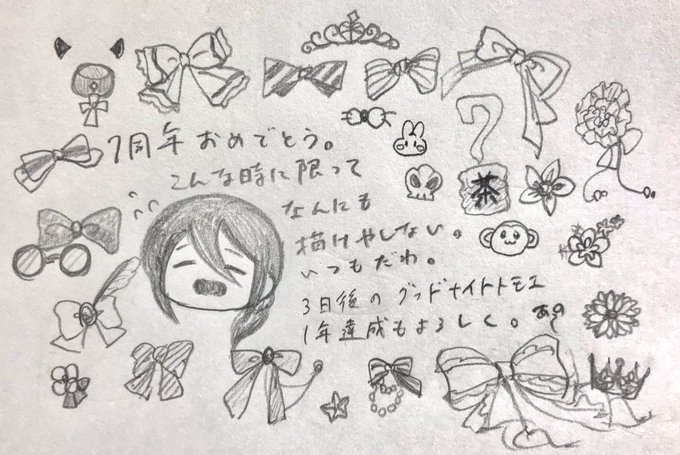 1周年おめでとう。
こんな時に限って
なんにも
描けやしない。
いつもだわ。
3日後のグッドナイトトモエ
1年達成もよろしく。
茶